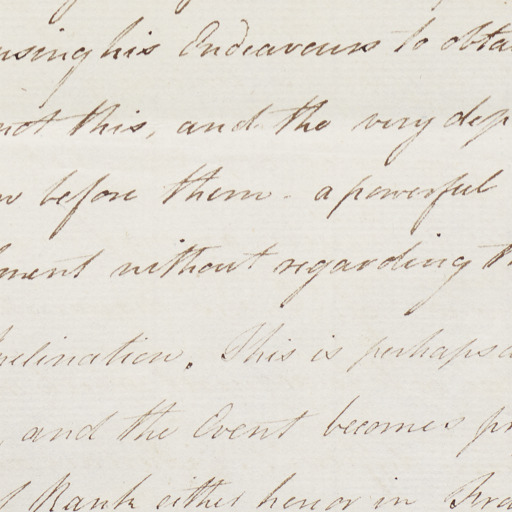 using his Endeavours to obta
not this, and the very dep
before them - a powerful
ment without regarding th
nclination. This is perhaps a
, and the Event becomes pr
Rank either honor in Fra